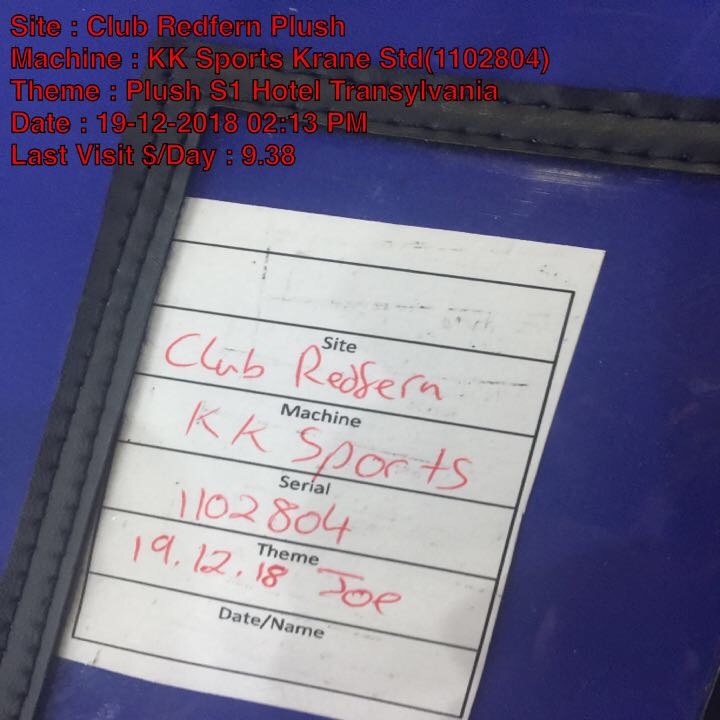 Site : Club Redfern Plush
Machine : KK Sports Krane Std(1102804)
Theme : Plush S1 Hotel Transylvania
Date : 19-12-2018 02:13 PM
Last Visit $/Day : 9.38
Site
Club Redfern
Machine
KK Sports
Serial
1102804
Theme
19.12.18 Joe
Date/Name